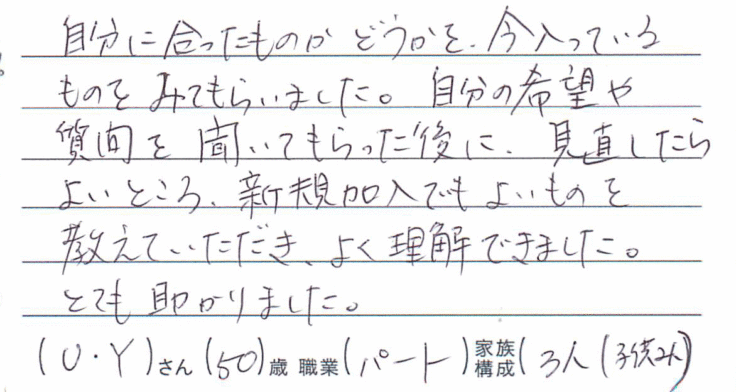 自分に合ったものかどうかを、今入っている
ものをみてもらいました。自分の希望や
質問を聞いてもらった後に、見直したら
よいところ、新規加入でもよいものを
教えていただき、よく理解できました。
とても助かりました。
(U・Y)さん(50)歳 職業(パート)家族構成(3人(子供2人)